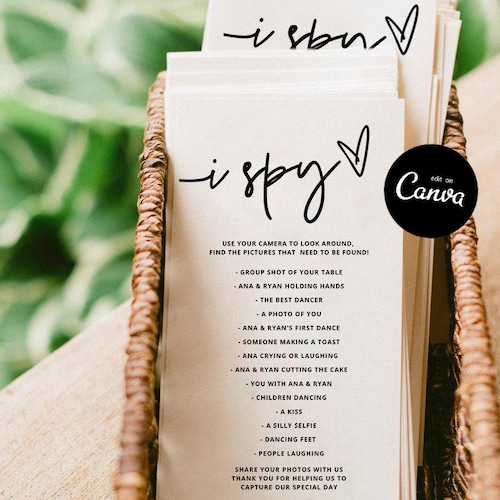 i spy
i spy
edit on
Canva
USE YOUR CAMERA TO LOOK AROUND,
FIND THE PICTURES THAT NEED TO BE FOUND!
- GROUP SHOT OF YOUR TABLE
- ANA & RYAN HOLDING HANDS
- THE BEST DANCER
- A PHOTO OF YOU
- ANA & RYAN'S FIRST DANCE
- SOMEONE MAKING A TOAST
- ANA CRYING OR LAUGHING
- ANA & RYAN CUTTING THE CAKE
- YOU WITH ANA & RYAN
- CHILDREN DANCING
- A KISS
- A SILLY SELFIE
- DANCING FEET
- PEOPLE LAUGHING
SHARE YOUR PHOTOS WITH US
THANK YOU FOR HELPING US TO
CAPTURE OUR SPECIAL DAY